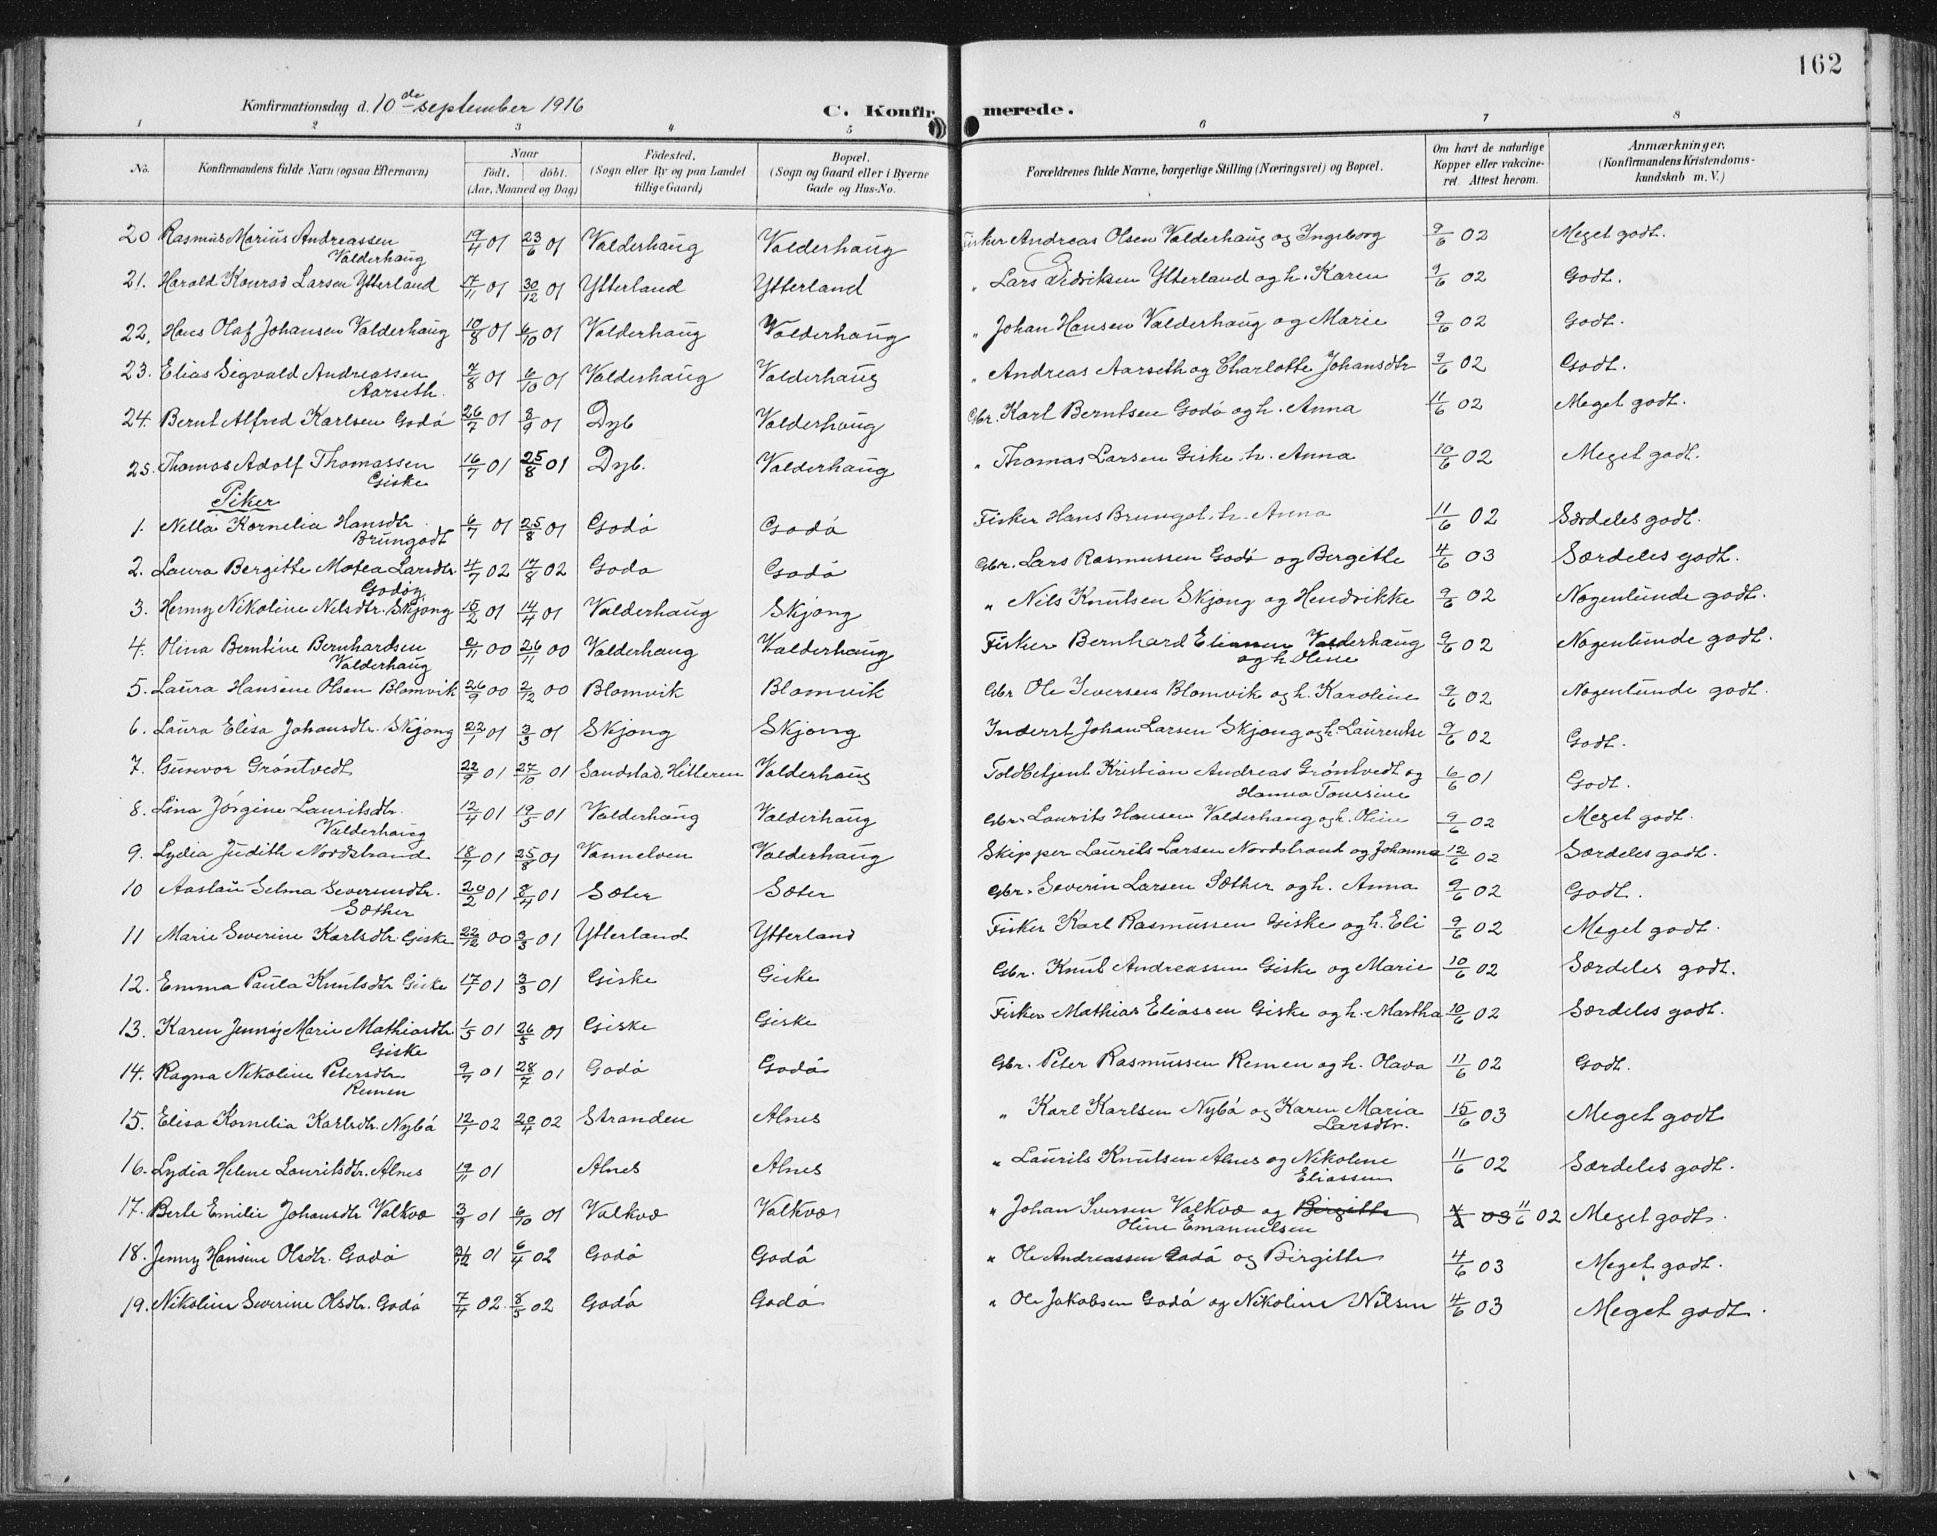 162
Konfirmationsdag d. 10de september 1916
C. Konfirmerede.
1 2 3 4 5 6 7 8
No. Konfirmandens fulde Navn (ogsaa Efternavn) Naar født. døbt. (Aar, Maaned og Dag) Fødested. (Sogn eller By og paa Landet tillige Gaard) Bopæl. (Sogn og Gaard eller i Byerne Gade og Hus-No. Forældrenes fulde Navne, borgerlige Stilling (Næringsvei) og Bopæl. Om havt de naturlige Kopper eller vaccineret. Attest herom. Anmærkninger. (Konfirmandens Kristendomskundskab m. V.)
20 Rasmus Marius Andreassen Valderhaug 19/4 01 23/6 01 Valderhaug Valderhaug Fisker Andreas Olsen Valderhaug og Ingeborg 9/6 02 Meget godt.
21. Harald Konrad Larsen Ytterland 17/11 01 30/12 01 Ytterland Ytterland " Lars Didriksen Ytterland og h. Karen 9/6 02 Godt.
22. Hans Olaf Johansen Valderhaug 10/8 01 6/10 01 Valderhaug Valderhaug " Johan Hansen Valderhaug og Marie 9/6 02 Godt.
23. Elias Sigvald Andreassen Aarseth. 7/8 01 6/10 01 Valderhaug Valderhaug " Andreas Aarseth og Charlotte Johansdtr 9/6 02 Godt.
24. Bernt Alfred Karlsen Godö 26/7 01 8/9 01 Dyb Valderhaug Gbr. Karl Berntsen Godö og h. Anna 11/6 02 Meget godt.
25. Thomas Adolf Thomassen Giske 16/7 01 25/8 01 Dyb. Valderhaug " Thomas Larsen Giske h. Anna 10/6 02 Meget godt.
Piker
1. Nella Kornelia Hansdtr. Brungodt 6/7 01 25/8 01 Godö Godö Fisker Hans Brungot. h. Anna 11/6 02 Særdeles godt.
2. Laura Bergitte Matea Larsdtr Godöy 4/7 02 17/8 02 Godo Godö Gbr. Lars Rasmussen Godö og Bergitte 4/6 03 Særdeles godt.
3. Henny Nikoline Nilsdtr. Skjong 15/2 01 14/4 01 Valderhaug Skjong " Nils Knutsen Skjong og Hendrikke 9/6 02 Nogenlunde godt.
4. Olina Berntine Bernhardsen Valderhaug 2/11 00 26/11 00 Valderhaug Valderhaug Fisker Bernhard Eliassen Valderhaug og h. Oline 9/6 02 Nogenlunde godt.
5. Laura Hansine Olsen Blomvik 26/9 00 2/12 00 Blomvik Blomvik Gbr Ole Iversen Blomvik og h. Karoline 9/6 02 Nogenlunde godt.
6. Laura Elisa Johansdtr. Skjong 22/1 01 3/3 01 Skjong Skjong Inderst Johan Larsen Skjong og h. Laurentse 9/6 02 Godt.
7. Gunvor Gröntvedt 22/9 01 27/10 01 Sandstad, Hitteren Valderhaug Toldbetjent Kristian Andreas Gröntvedt og Hanna Tomine 6/6 01 Godt.
8. Lina Jörgine Lauritsdtr. Valderhaug 12/4 01 19/5 01 Valderhaug Valderhaug Gbr. Laurits Hansen Valderhaug og h. Oline 9/6 02 Meget godt.
9. Lydia Judith Nordstrand 18/7 01 25/8 01 Vannelven Valderhaug Skipper Laurits Larsen Nordstrand og Johanna 12/6 02 Særdeles godt.
10 Aaslau Selma Severinsdtr. Sæther 20/2 01 8/4 01 Sæter Sæter Gbr. Severin Larsen Sæther og h. Anna 9/6 02 Godt.
11 Marie Severine Karlsdtr. Giske 22/12 00 3/3 01 Ytterland Ytterland Fisker Karl Rasmussen Giske og h. Eli 9/6 02 Meget godt.
12. Emma Paula Knutsdtr Giske 17/1 01 3/3 01 Giske Giske Gbr. Knut Andreassen Giske og Marie 10/6 02 Særdeles godt.
13. Karen Jenny Marie Mathiasdtr. Giske 1/5 01 26/5 01 Giske Giske Fisker Mathias Eliassen Giske og h. Martha 10/6 02 Særdeles godt.
14. Ragna Nikoline Petersdtr Remen 9/7 01 28/7 01 Godö Godö Gbr. Peter Rasmussen Remen og h. Olava 11/6 02 Godt.
15. Elisa Kornelia Karlsdtr. Nybö 12/1 02 20/4 02 Stranden Alnes " Karl Karlsen Nybö og Karen Maria Larsdtr. 15/6 03 Meget godt
16. Lydia Helene Lauritsdtr. Alnes 19/11 01 Alnes Alnes " Laurits Knutsen Alnes og Nikoline Eliassen 11/6 02 Særdeles godt.
17. Berte Emilie Johansdtr Valkvæ 3/9 01 6/10 01 Valkvæ Valkvæ " Johan Iversen Valkvæ og Birgitte Oline Emanuelsen 4/6 03 11/6 02 Meget godt.
18. Jenny Hansine Olsdtr. Godö 21/12 01 6/4 02 Godö Godö " Ole Andreassen Godö og Birgitte 4/6 03 Meget godt.
19. Nikoline Severine Olsdtr. Godö 7/4 02. 8/5 02 Godö Godö " Ole Jakobsen Godö og Nikoline Nilsen 4/6 03 Meget godt.